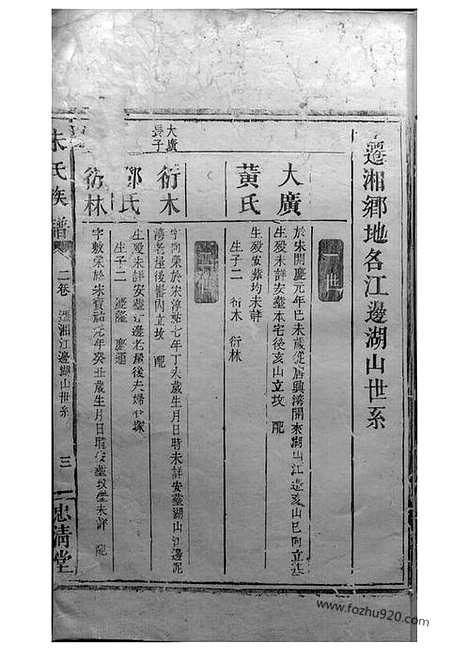 遷湘鄉地名江邊湖山世系
一世
大廣
於宋開慶元年己未歲從居興灣開來湖山江邊亥山巳向立基
生歿未詳安塟本宅後亥山立坟 配
黃氏
生歿安塟均未詳
生子二 衍木 衍林
二世
大廣長子
衍木
字向榮於宋淳 七年丁 歲生月日時未詳安塟湖山江邊
老屋後 立坟 配
氏
生歿未詳安塟江邊老屋後夫婦 塚
生子二
衍林
字敷榮於宋寶祐元年癸丑歲生月日時 安塟坟 未詳 配
朱氏族譜
二卷 遷湘江邊湖山世系
三
忠清堂
www.fozhu920.com